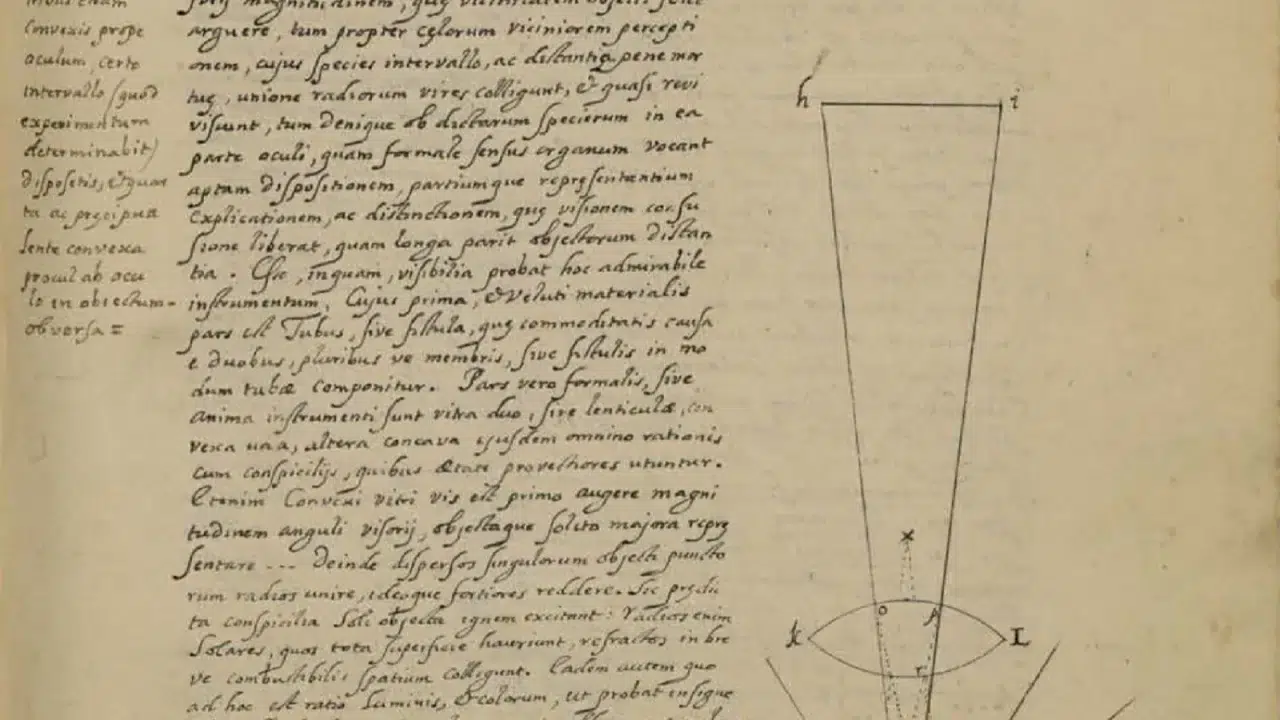 Convexis prope
oculum, certo
intervallo (quod
experimentum
determinabit)
dispositis, et
ta ac pręcipua
lente convexa
procul ab ocu
lo in obiectum
obversa =
arguere, tum propter cęlorum viciniorem percepti
onem, cujus species intervallo, ac distantia pene mor
tuę, unione radiorum vires colligunt, & quasi revi
viscunt, tum denique ob dictarum specierum in ea
parte oculi, quam formale sensus organum vocant
aptam dispositionem, partiumque repręsentantium
explicationem, ac distinctionem, quę visionem confu
sione liberat, quam longa parit objectorum distan
tia. Esse, inquam, visibilia probat hoc admirabile
instrumentum, Cujus prima, & veluti materialis
pars est Tubus, sive fistula, quę commoditatis causa
e duobus, pluribus ve membris, sive fistulis in mo
dum tubæ componitur. Pars vero formalis, sive
anima instrumenti sunt vitra duo, sive lenticulæ, con
vexa una, altera concava ejusdem omnino rationis
cum conspicilijs, quibus ætate provectiores utuntur.
Etenim Convexi vitri vis est primo augere magni
tudinem anguli visorij, objectaque solito majora reprę
sentare --- Deinde dispersos singulorum objecti puncto
rum radios unire, ideoque fortiores reddere. Sic prędic
ta conspicilia Soli objecta ignem excitant: radios enim
Solares, quos tota superficie hauriunt, refractos in bre
ve combustibilis spatium colligunt. Eadem autem quo
ad hoc est ratio Luminis, & colorum, ut probat insigne
h i
x
o p
k L
r